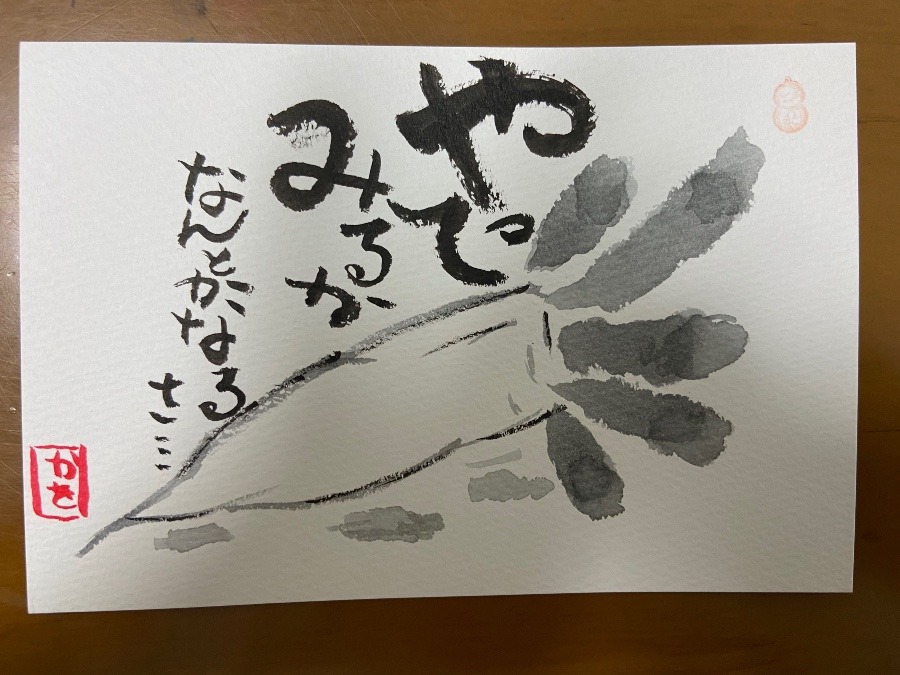 やって
みるか
なんとかなる
さ…
かを